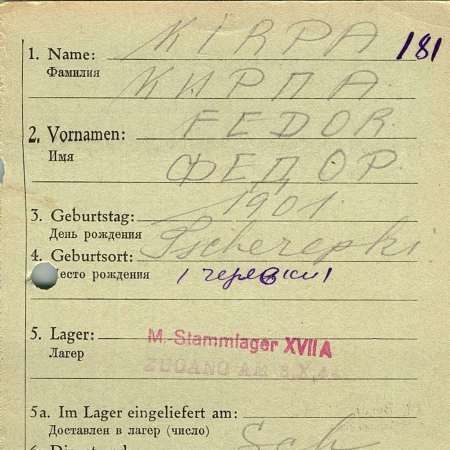 1. Name: KIRPA 181
Фамилия КИРПА
2. Vornamen: FEDOR
Имя ФЕДОР
3. Geburtstag: 1901.
День рождения
4. Geburtsort: Tscherepki
место рождения
5. Lager: M. Stammlager XVII A
Лагерь ZUGANG AM
5a. Im Lager eingeliefert am:
Доставлен в лагерь (число)
Sch